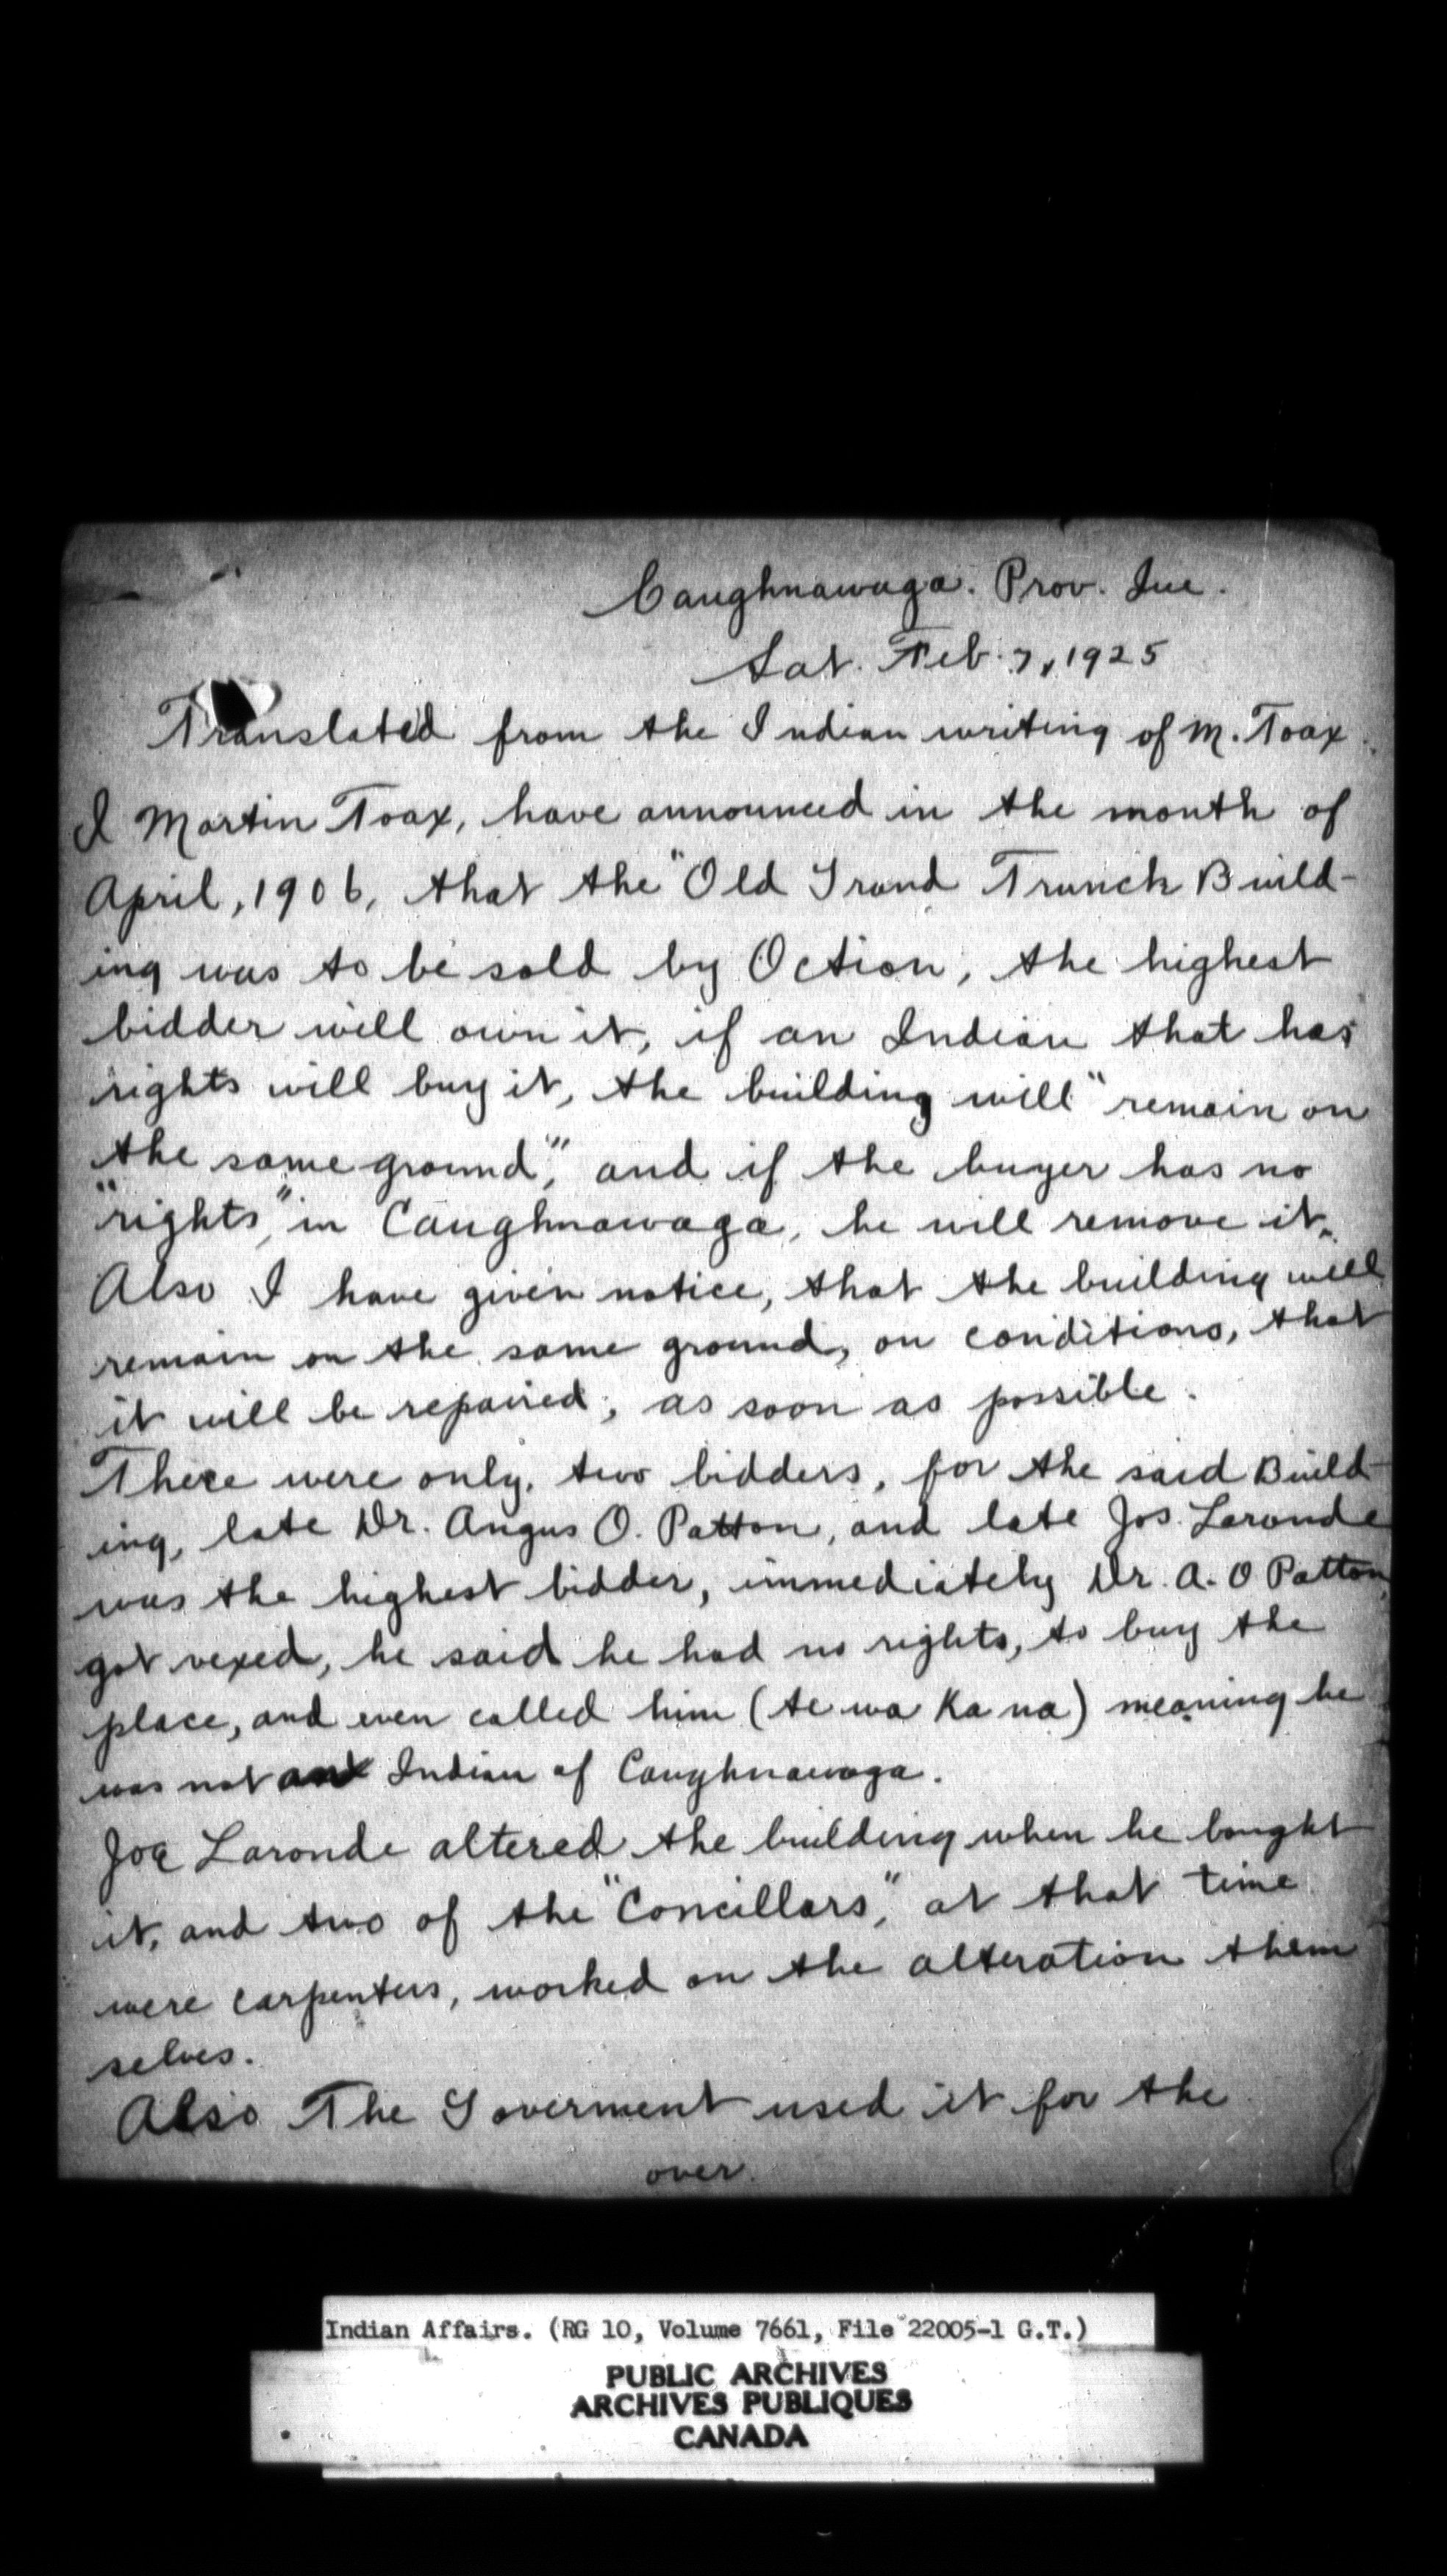 Caughnawaga. Prov. Que.
Sat. Feb. 7, 1925
Translated from the Indian writing of M. Toax.
I Martin Toax, have announced in the month of
April, 1906, that the "Old Grand Trunck Build-
ing was to be sold by Oction, the highest
bidder will own it, if an Indian that has
rights will buy it, the building will "remain on
the same ground", and if the buyer has no
"rights," in Caughnawaga, he will remove it.
Also I have given notice, that the building will
remain on the same ground, on conditions, that
it will be repaired, as soon as possible.
There were only, two bidders, for the said Build-
ing, late Dr. Angus O. Patton, and late Jos. Laronde
was the highest bidder, immediately Dr. A. O Patton,
got vexed, he said he had no rights, to buy the
place, and even called him (te wa ka na) meaning he
was not an Indian of Caughnawaga.
Joe Laronde altered the building when he bought
it, and two of the "Concillars," at that time
were carpenters, worked on the alteration them
selves.
Also The Goverment used it for the
over.
Indian Affairs. (RG 10, Volume 7661, File 22005-1 G.T.)
PUBLIC ARCHIVES
ARCHIVES PUBLIQUES
CANADA